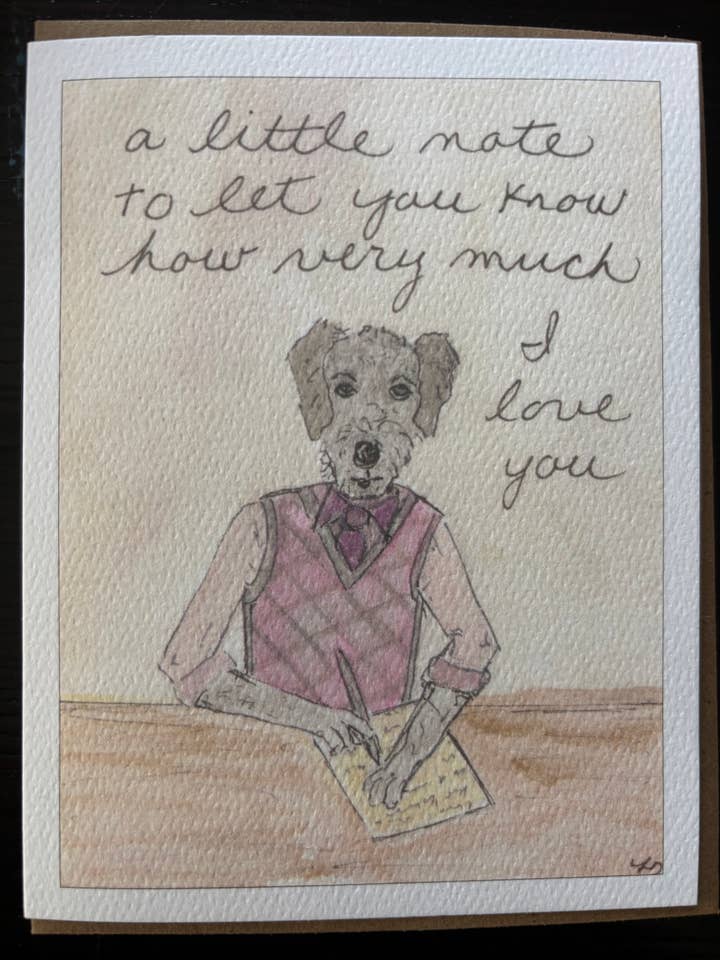 a little note
to let you know
how very much
I
love
you